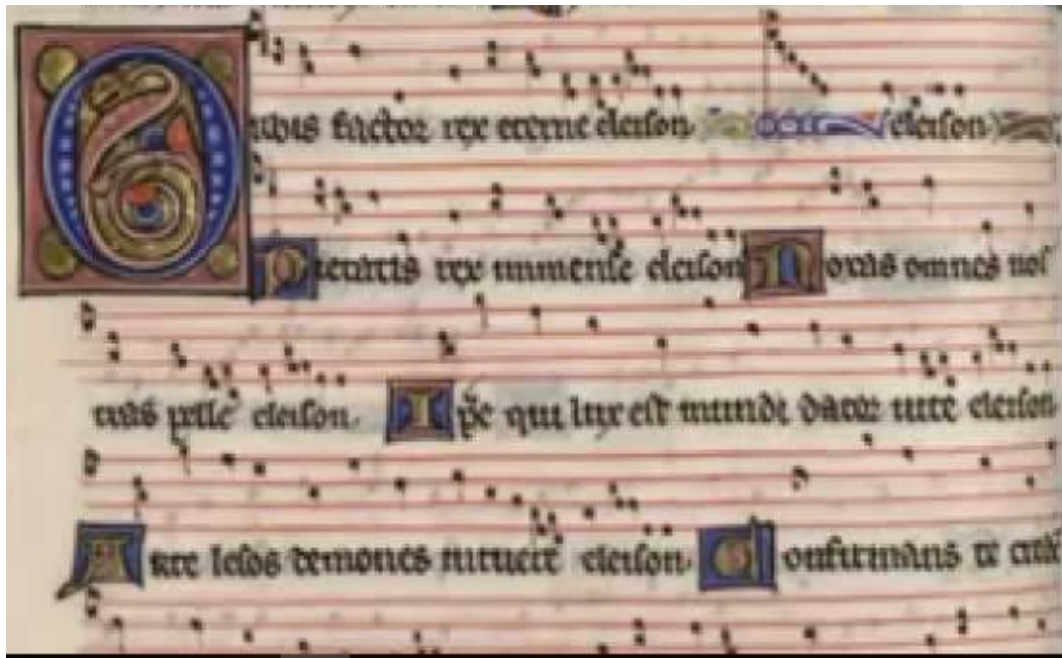 Orbis factor rex eterne eleison eleison
Pietatis rex immense eleison Noxas omnes nos
tras pelle eleison. Xpe qui lux est mundi dator vite eleison
Arte lesos demones intuere eleison. Confirmans te